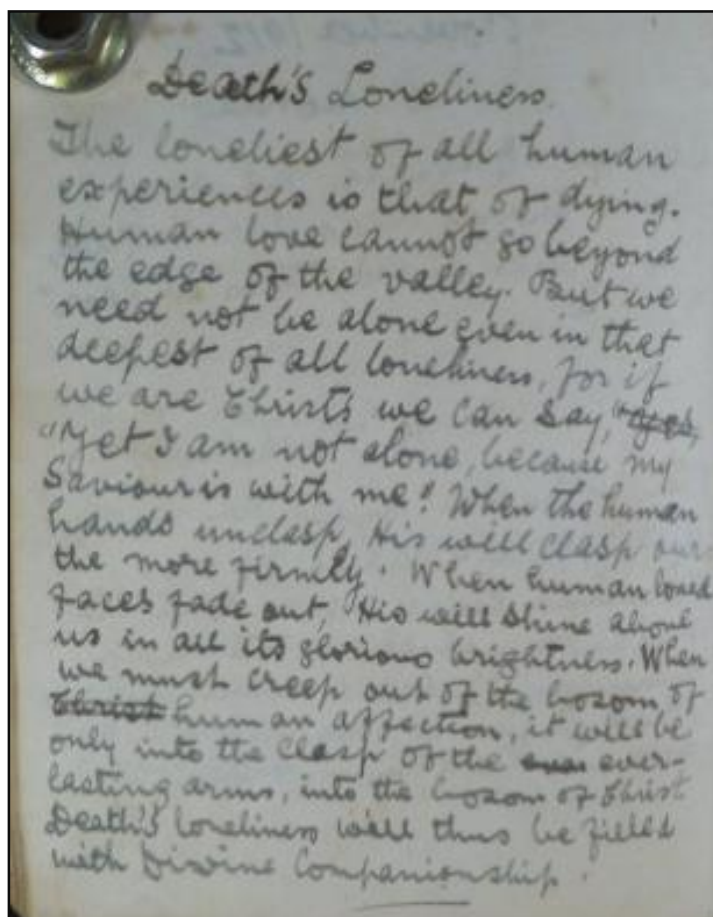 Death's Loneliness
The loneliest of all human
experiences is that of dying.
Human love cannot go beyond
the edge of the valley. But we
need not be alone even in that
deepest of all loneliness, for if
we are Christs we can say, "yes,
"Yet I am not alone, because my
Saviour is with me!" When the human
hands unclasp, His will clasp ours
the more firmly. When human loved
faces fade out, His will shine about
us in all its glorious brightness. When
we must creep out of the bosom of
Christ human affection, it will be
only into the clasp of the ever-
lasting arms, into the bosom of Christ
Death's loneliness will thus be filled
with Divine Companionship.